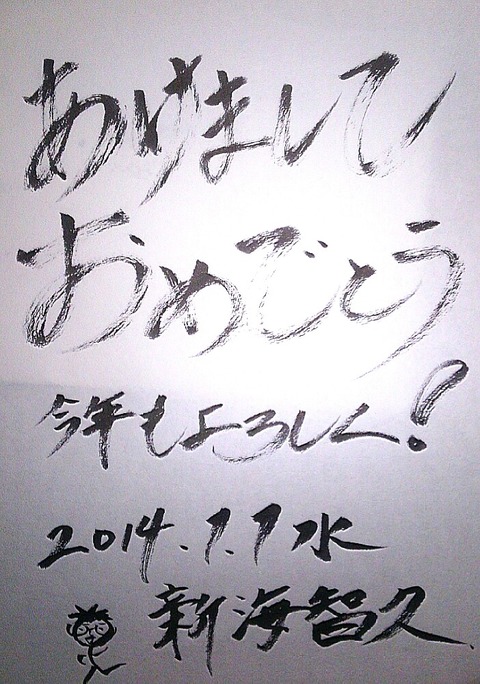 あけまして
おめでとう
今年もよろしく!
2014.1.1水
新海智久